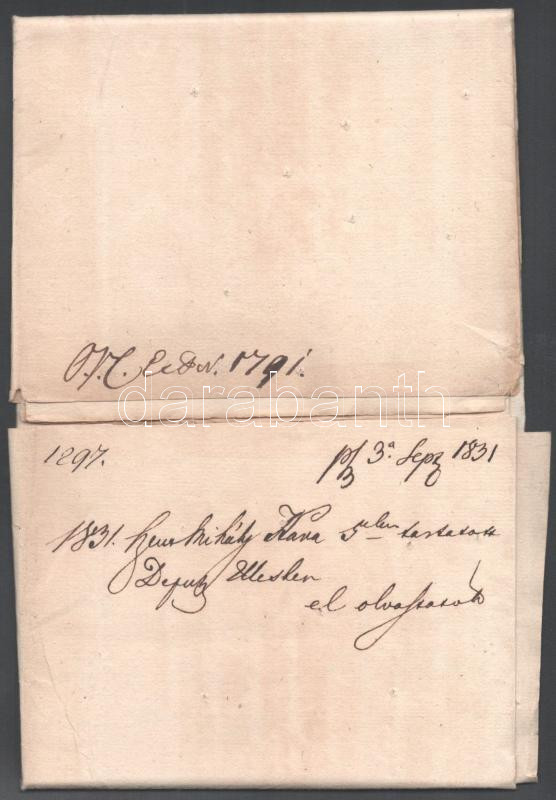 1791.
darabanth
1297.
3ª Sept 1831
1831. Szent Mihály Hava 5dikén tartatott
Deput Ülésben
el olvastatott